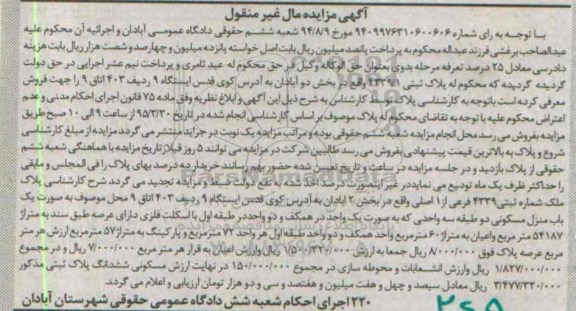 آگهی مزایده مال غیر منقول
با توجه به رای شماره ۹۴۰۹۹۷۶۳۱۰۶۰۰۶۰۶ مورخ ۹۴/۸/۹ شعبه ششم حقوقی دادگاه عمومی آبادان و اجرائیه آن محکوم علیه
عبدالصاحب برغشی فرزند عبداله محکوم به پرداخت پانصد میلیون ریال بابت اصل خواسته پانزده میلیون و چهارصد و شصت هزار ریال بابت هزینه
دادرسی معادل ۲۵ درصد تعرفه مرحله بدوی بعنوان حق الوکاله وکیل در حق محکوم له عبد ثامری و پرداخت نیم عشر اجرایی در حق دولت
گردیده گردیده که محکوم له پلاک ثبتی ۴۳۳۹/۱ واقع در بخش دو آبادان به آدرس کوی قدس ایستگاه ۹ ردیف ۴۰۳ اتاق ۹ را جهت فروش
معرفی کرده است باتوجه به کارشناسی پلاک توسط کارشناس به شرح ذیل این آگهی و ابلاغ نظریه وفق ماده ۷۵ قانون اجرای احکام مدنی و عدم
اعتراض محکوم علیه با توجه به تقاضای محکوم له پلاک موصوف بر اساس کارشناسی انجام شده در تاریخ ۹۵/۳/۳۰ از ساعت ۹ الی ۱۰ صبح طریق
مزایده بفروش می رسد محل انجام مزایده شعبه ششم حقوقی بوده و مراتب مزایده یک نوبت در جراید منتشر می گردد مزایده از مبلغ کارشناسی
شروع و پلاک به بالاترین قیمت پیشنهادی بفروش می رسد طالبین شرکت در مزایده می توانند ۵ روز قبل از تاریخ مزایده با هماهنگی شعبه ششم
حقوقی از پلاک بازدید و در جلسه مزایده در ساعت و تاریخ تعیین شده حضور بهم رسانند خریدار ده درصد بهای پلاک را فی المجلس و مابقی
را حداکثر ظرف یک ماه تودیع می نماید در غیر اینصورت درصد اخذ شده به نفع دولت ضبط و مزایده تجدید می گردد شرح کارشناسی پلاک
ملک شماره ثبتی ۴۳۳۹ فرعی از ۱ اصلی واقع در بخش ۲ ابادان به آدرس کوی قدس ایستگاه ۹ ردیف ۴۰۳ اتاق ۹ محل موصوف به صورت یک
باب منزل مسکونی دو طبقه سه واحدی که به صورت یک واحد در همکف و دو واحد در طبقه اول با اسکلت فلزی دارای عرصه طبق سند به متراژ
۵۴۱۸۷ متر مربع واعیان به متراژ ۶۰ مترمربع واحد همکف و دو واحد طبقه اول هر واحد ۷۲ مترمربع و پارکینگ به متراژ ۵۷ مترمربع ارزش هر متر
مربع عرصه پلاک فوق ۸/۰۰۰/۰۰۰ ریال جمعا به ارزش ریال وارزش اعیان به قرار هر متر مربع ۷/۰۰۰/۰۰۰ ریال و در مجموع
۱/۸۲۷/۰۰۰/۰۰۰ ریال وارزش انشعابات و محوطه سازی در مجموع ۱۵۰/۰۰۰/۰۰۰ در نهایت ارزش مسکونی ششدانگ پلاک ثبتی مذکور
۳/۴۷۷/۳۲۰/۰۰۰ ریال معادل سیصد و چهل و هفت میلیون و هفتصد و سی و دو هزار تومان ارزیابی و اعلام می گردد.
۲۲۰ اجرای احکام شعبه شش دادگاه عمومی حقوقی شهرستان آبادان
۲۶۵